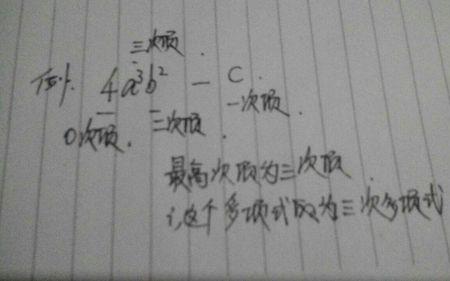 三次项.
例. 4a³b² — C.
0次项. 二次项. 一次项.
最高次项为三次项
∴这个多项式为三次多项式